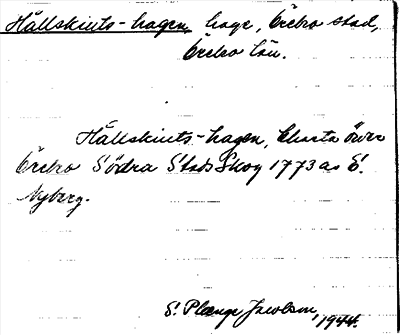 Hållskints-hagen, hage, Örebro stad,
Örebro län.
Hållskints-hagen, Charta öwer
Örebro Södra Stads Skog 1773 as E.
Nyberg.
E. Plænge Jacobson, 1944.